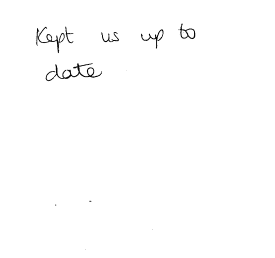 Kept us up to
date